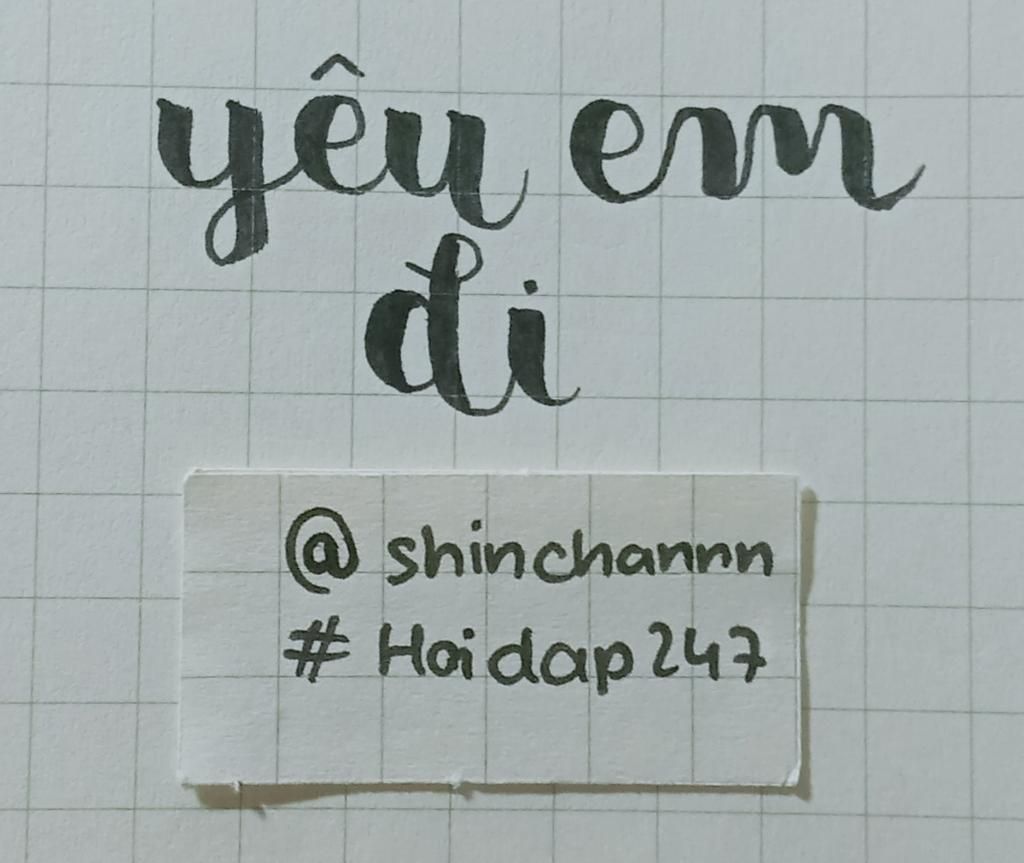 yêu em
đi
@ shinchannn
# Hoidap247